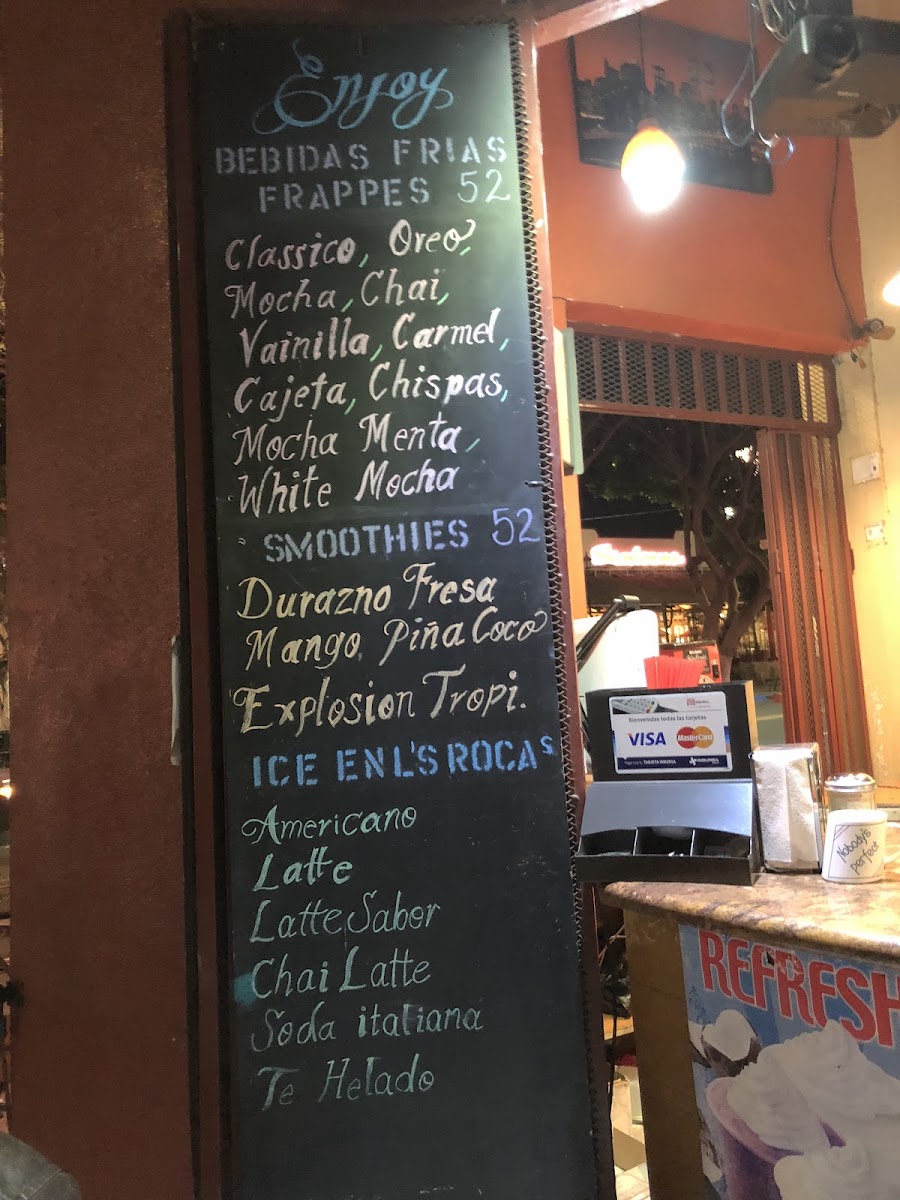 Enjoy
BEBIDAS FRIAS
FRAPPES 52
Classico, Oreo,
Mocha, Chai,
Vainilla, Carmel,
Cajeta, Chispas,
Mocha Menta,
White Mocha
SMOOTHIES 52
Durazno Fresa
Mango, Piña Coco
Explosion Tropi.
ICE EN L'S ROCAS
Americano
Latte
Latte Sabor
Chai Latte
Soda italiana
Te Helado
Bienvenidas todas las tarjetas
VISA MasterCard
Nobody's
perfect
REFRESH